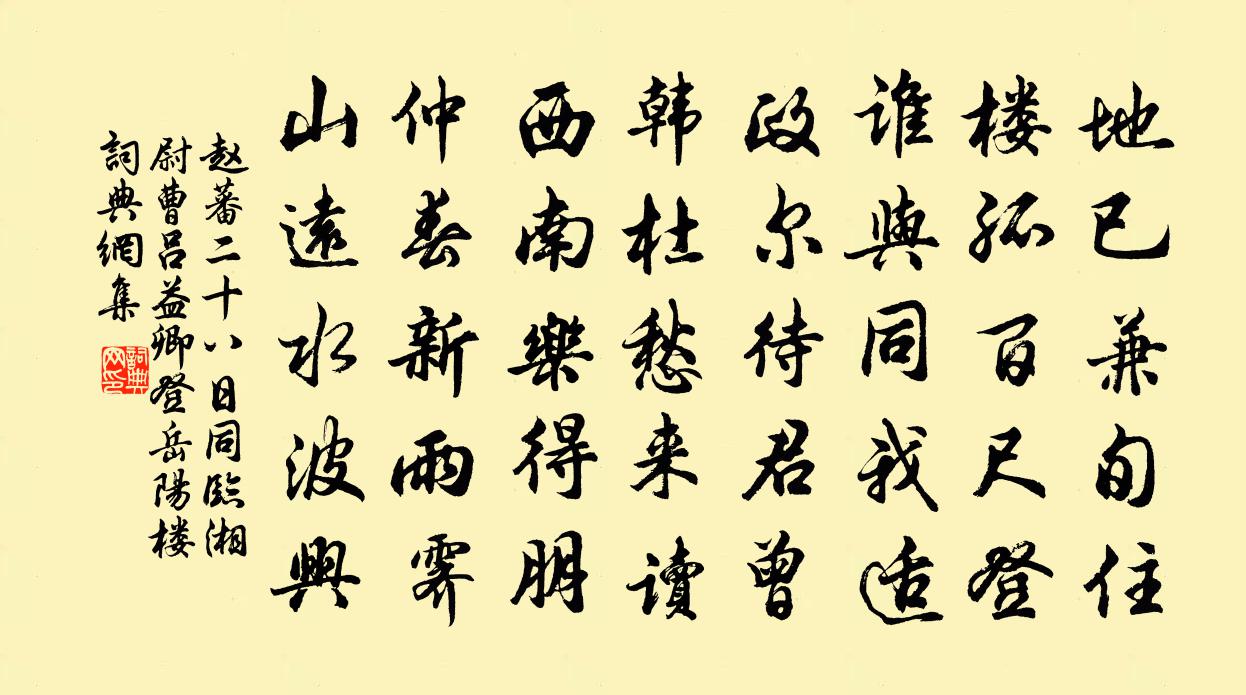 地已兼旬住
楼孤百尺登
谁與同我适
政尔待君曾
韩杜愁来讀
西南樂得朋
仲春新雨霁
山遠水波興
赵蕃二十八日同臨湘
尉曹吕益卿登岳陽楼
詞典網集
詞典
网印